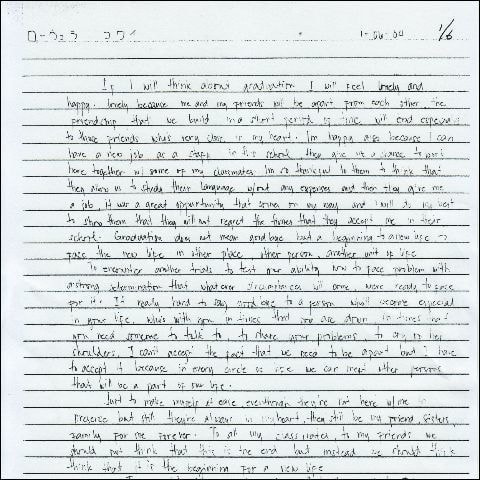 1-06-04 1/6
If I will think about graduation I will feel lonely and
happy. lonely because me and my friends will be apart from each other, the
friendship that we build in a short period of time will end especially
to those friends who's very close in my heart. I'm happy also because I can
have a new job as a staff in this school, they give me a chance to work
here together w/ some of my classmates. I'm so thankful to them to think that
they allow us to study their language w/out any expenses and then they give me
a job, it was a great opportunity that comes on my way and I will do my best
to show them that they will not regret the times that they accept me in their
school. Graduation does not mean goodbye but a beginning to a new life, to
face the new life in other place, other person, another unit of life
To encounter another trials to test our ability how to face problem with
a strong determination that whatever circumstances will come, we're ready to face
for it. It really hard to say goodbye to a person who'll become especial
in your life. Who's with you in times that you are down in times that
you need someone to talk to, to share your problems to cry in her
shoulders, I can't accept the fact that we need to be apart but I have
to accept it because in every circle of life we can meet other persons
that will be a part of our life.
Just to make myself at ease, eventhough they're not here w/ me in
presence but still they're always in my heart, they still be my friend, sisters,
family for me forever. To all my classmates, to my friends we
should not think that this is the end but instead we should think
think that it is the beginning for a new life